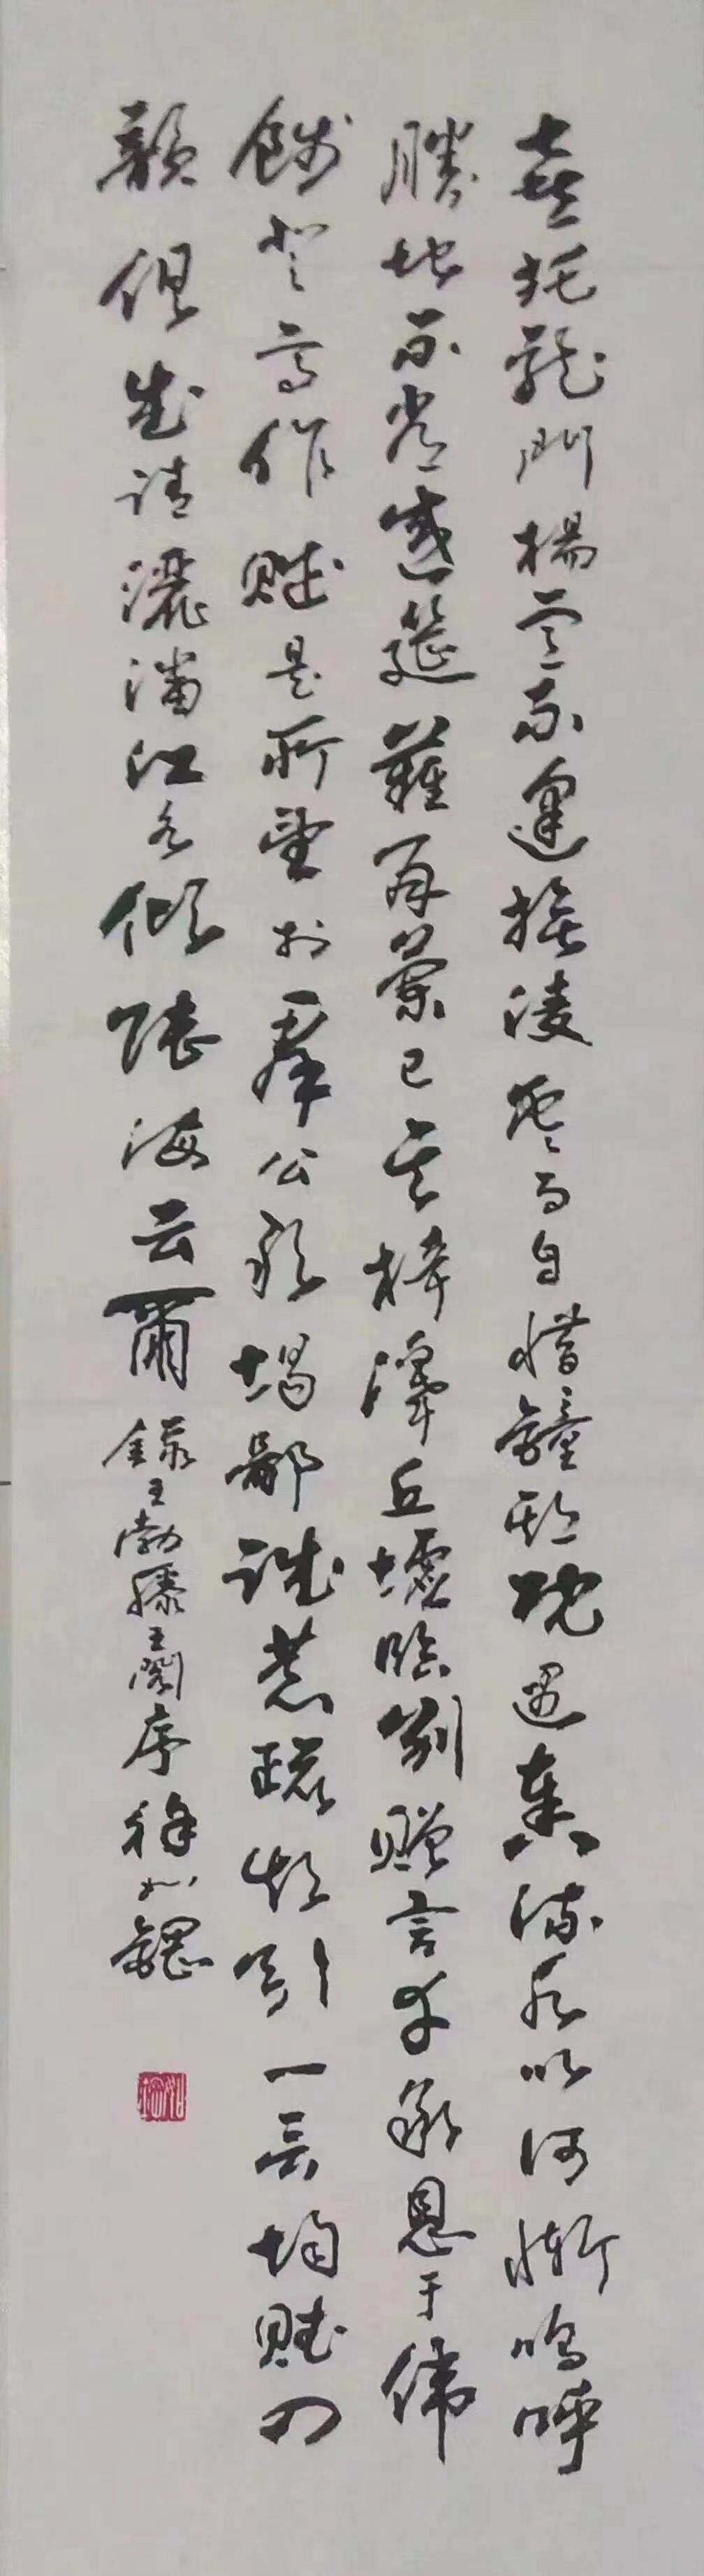 喜托龍門楊意不逢撫凌雲而自惜鐘期既遇奏流水以何慚嗚呼
勝地不常盛筵難再蘭已矣梓澤丘墟臨別贈言幸承恩于偉
餞登高作賦是所望於羣公敢竭鄙誠恭疏短引一言均賦四
韻俱成請灑潘江各傾陸海云爾錄王勃滕王閣序徐